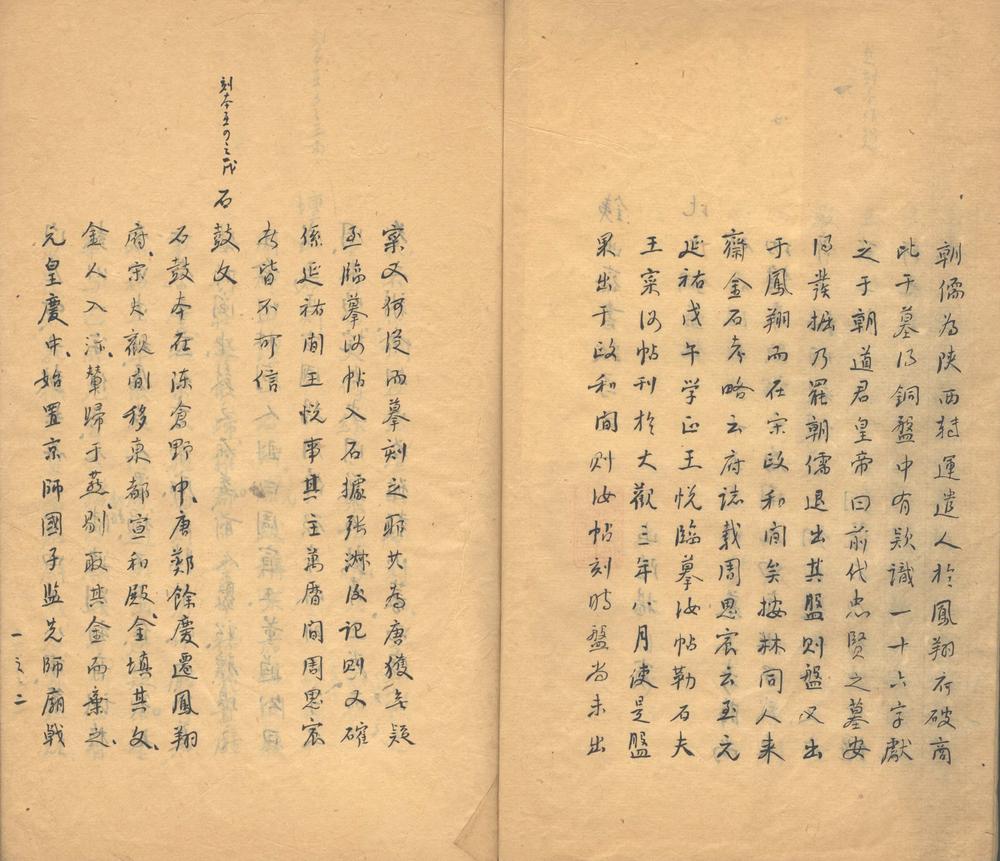 朝儒为陕西轉運遣人於鳳翔府破商
比干墓得銅盤中有欵識一十六字獻
之于朝道君皇帝曰前代忠賢之墓安
得發掘乃罷朝儒退出其盤則盤又出
于鳳翔而在宋政和间矣按林同人来
齋金石考略云府誌載周思宸云至元
延祐戊午学正王悦臨摹汝帖勒石夫
王寀汝帖刊於大觀三年八月使是盤
果出于政和间则汝帖刻时盤尚未出
寀又何從而摹刻之耶其為唐獲無疑
至臨摹汝帖入石據张淋後记则又確
係延祐间王悦事其主萬曆间周思宸
者皆不可信
刻本五の之一代
石鼓文
石鼓本在陈倉野中、唐鄭餘慶遷鳳翔
府、宋大觀间移東都宣和殿、金填其文、
金人入汴、輦歸于燕、剔取其金而棄之、
元皇慶中、始置京師國子監先師廟戟
一之二